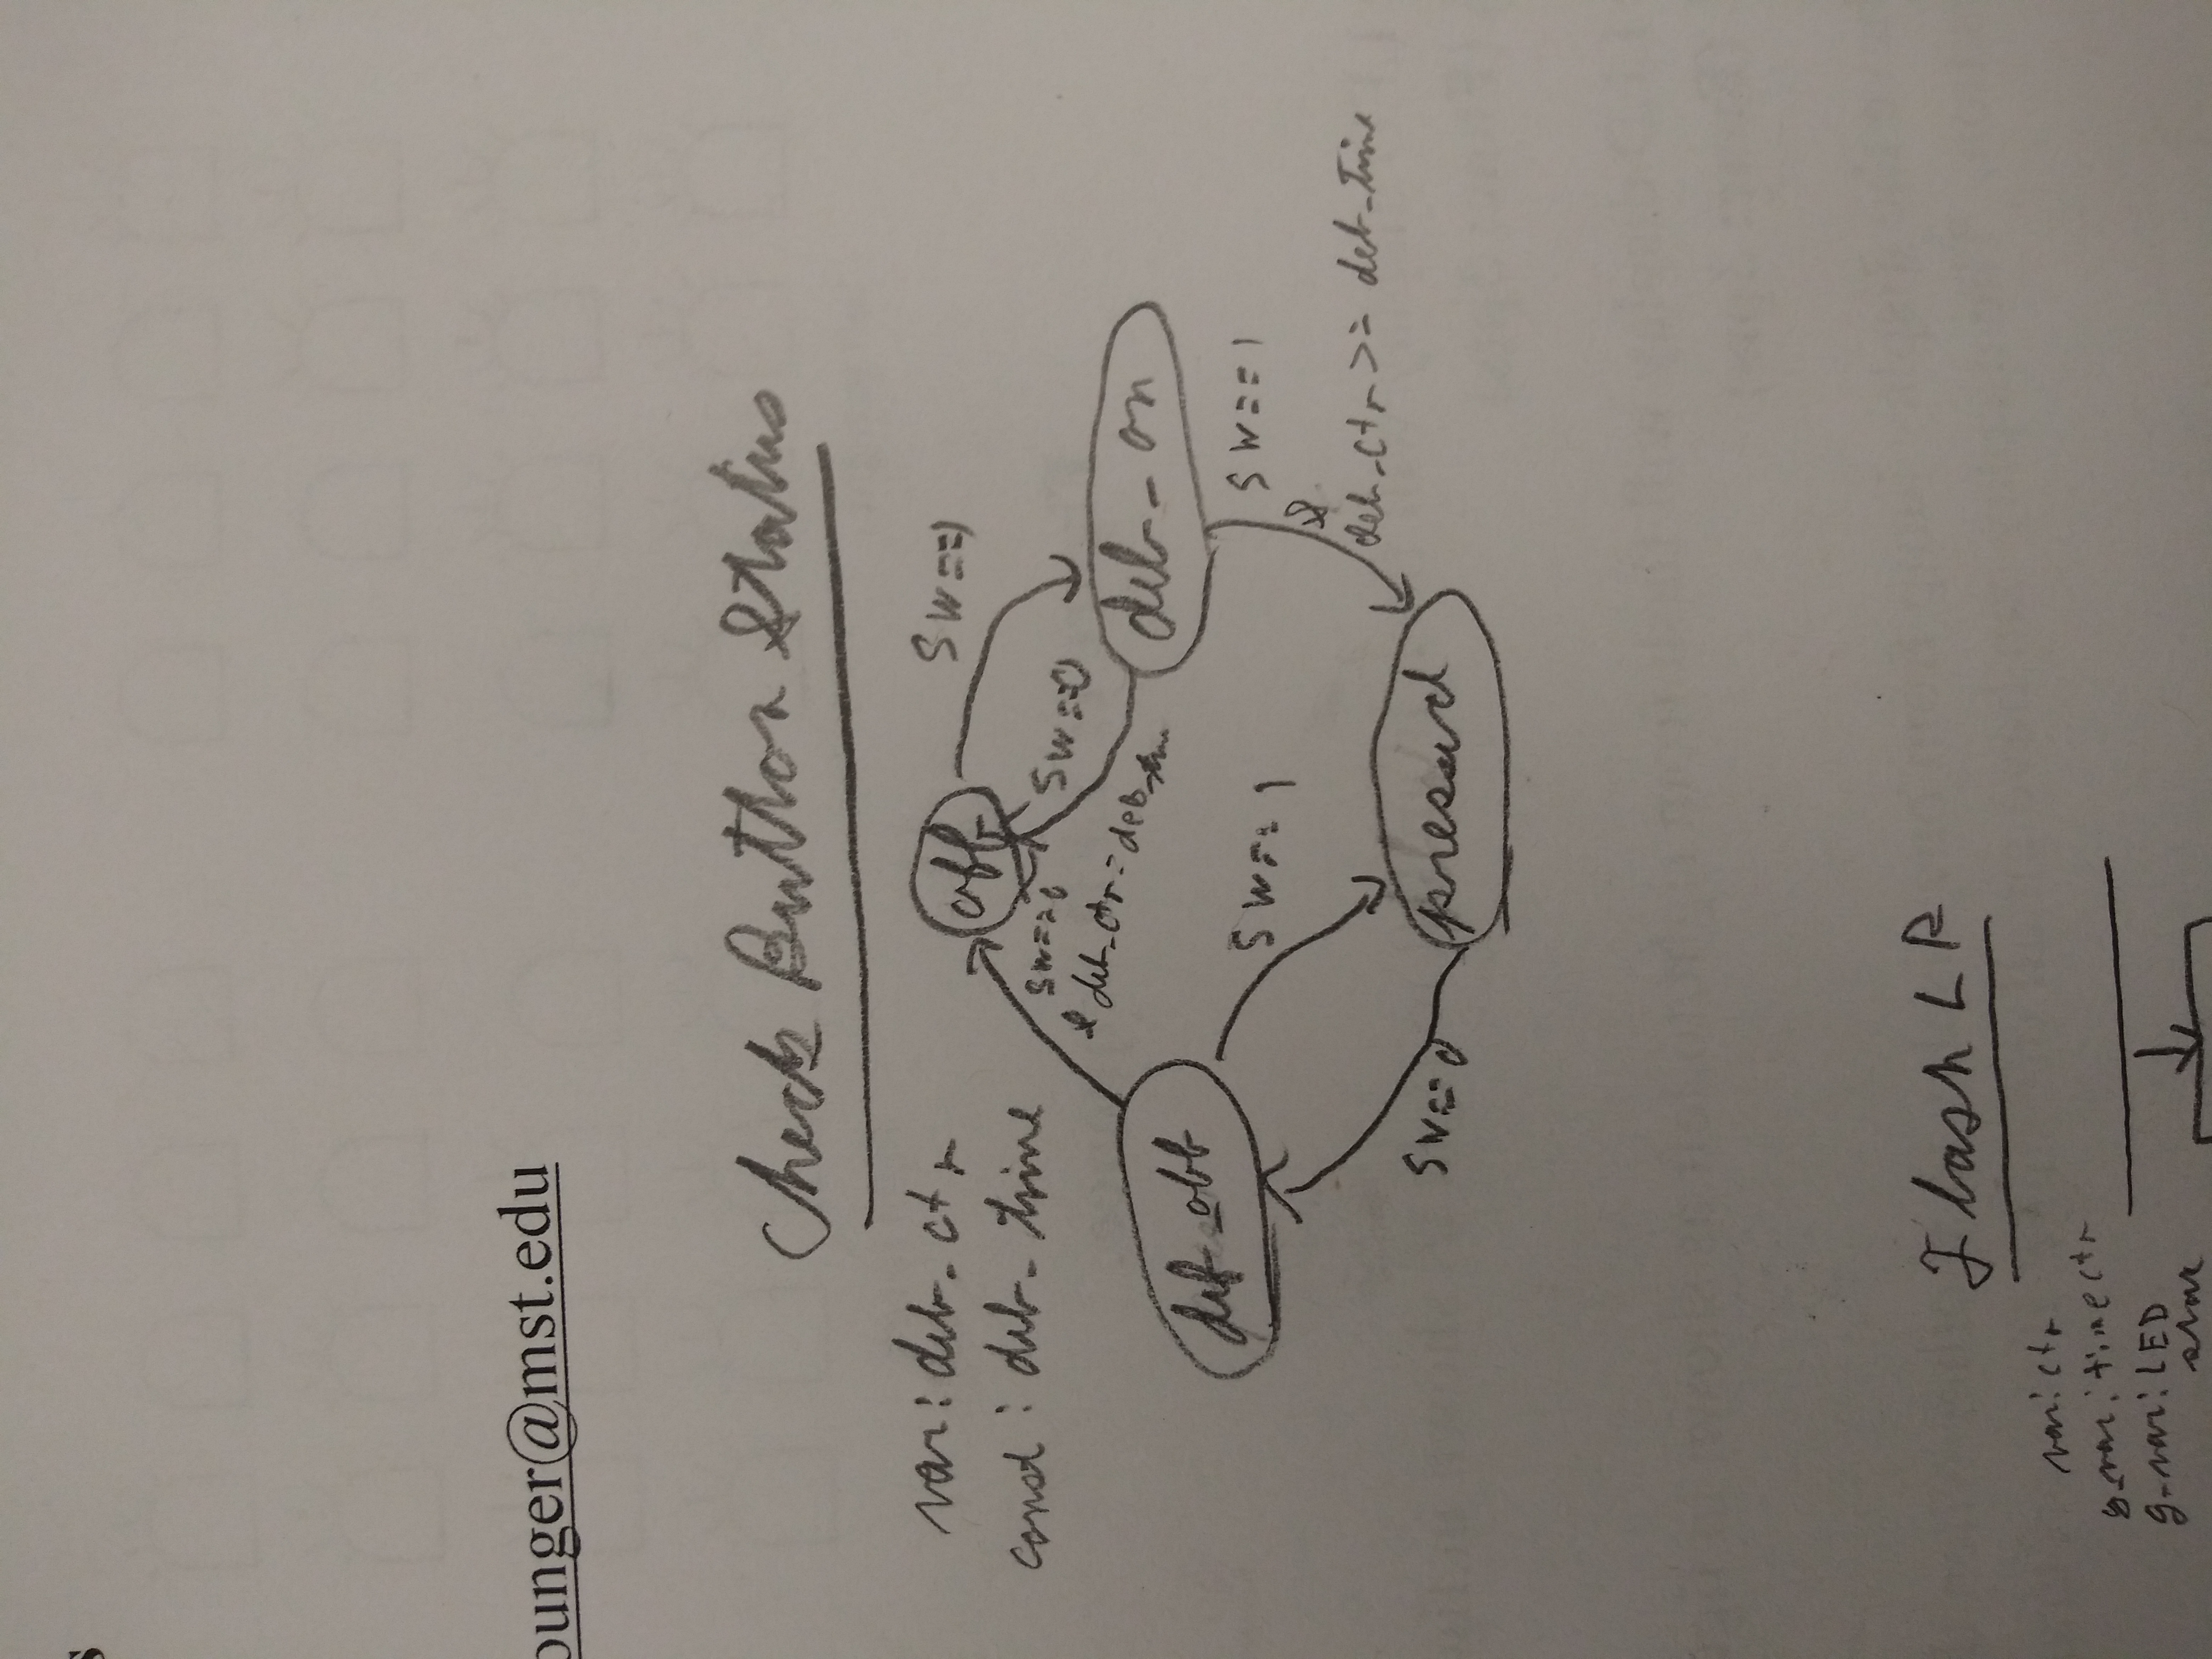 s
ounger@mst.edu
Check Button Status
var: deb_ctr
const: deb_time
off
SW==1
SW==0
& deb_ctr = deb_tim
SW==0
deb_on
deb_off
SW==1
SW==1
&
deb_ctr >= deb_time
SW==0
pressed
Flash LR
var: ctr
g_var: timectr
g_var: LED